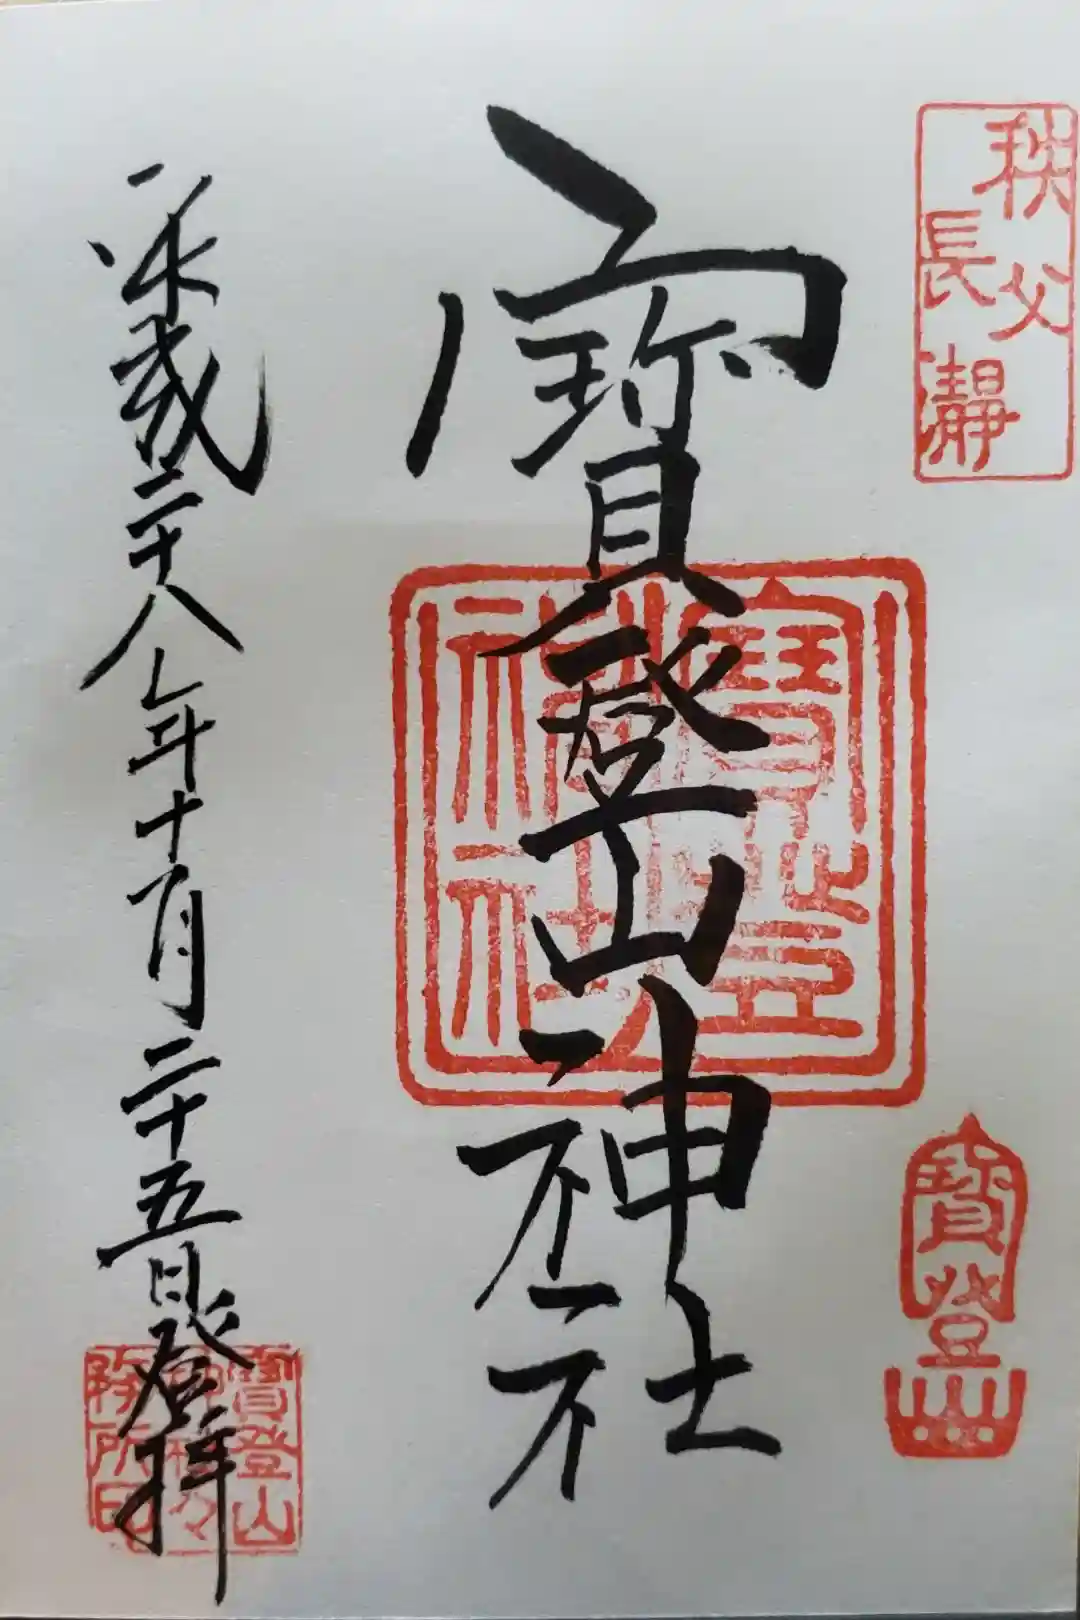 秩父
長瀞
寶登山神社
寶登山
神社
寶登山
平成二十八年十月二十五日登拝
寶登山
務所印